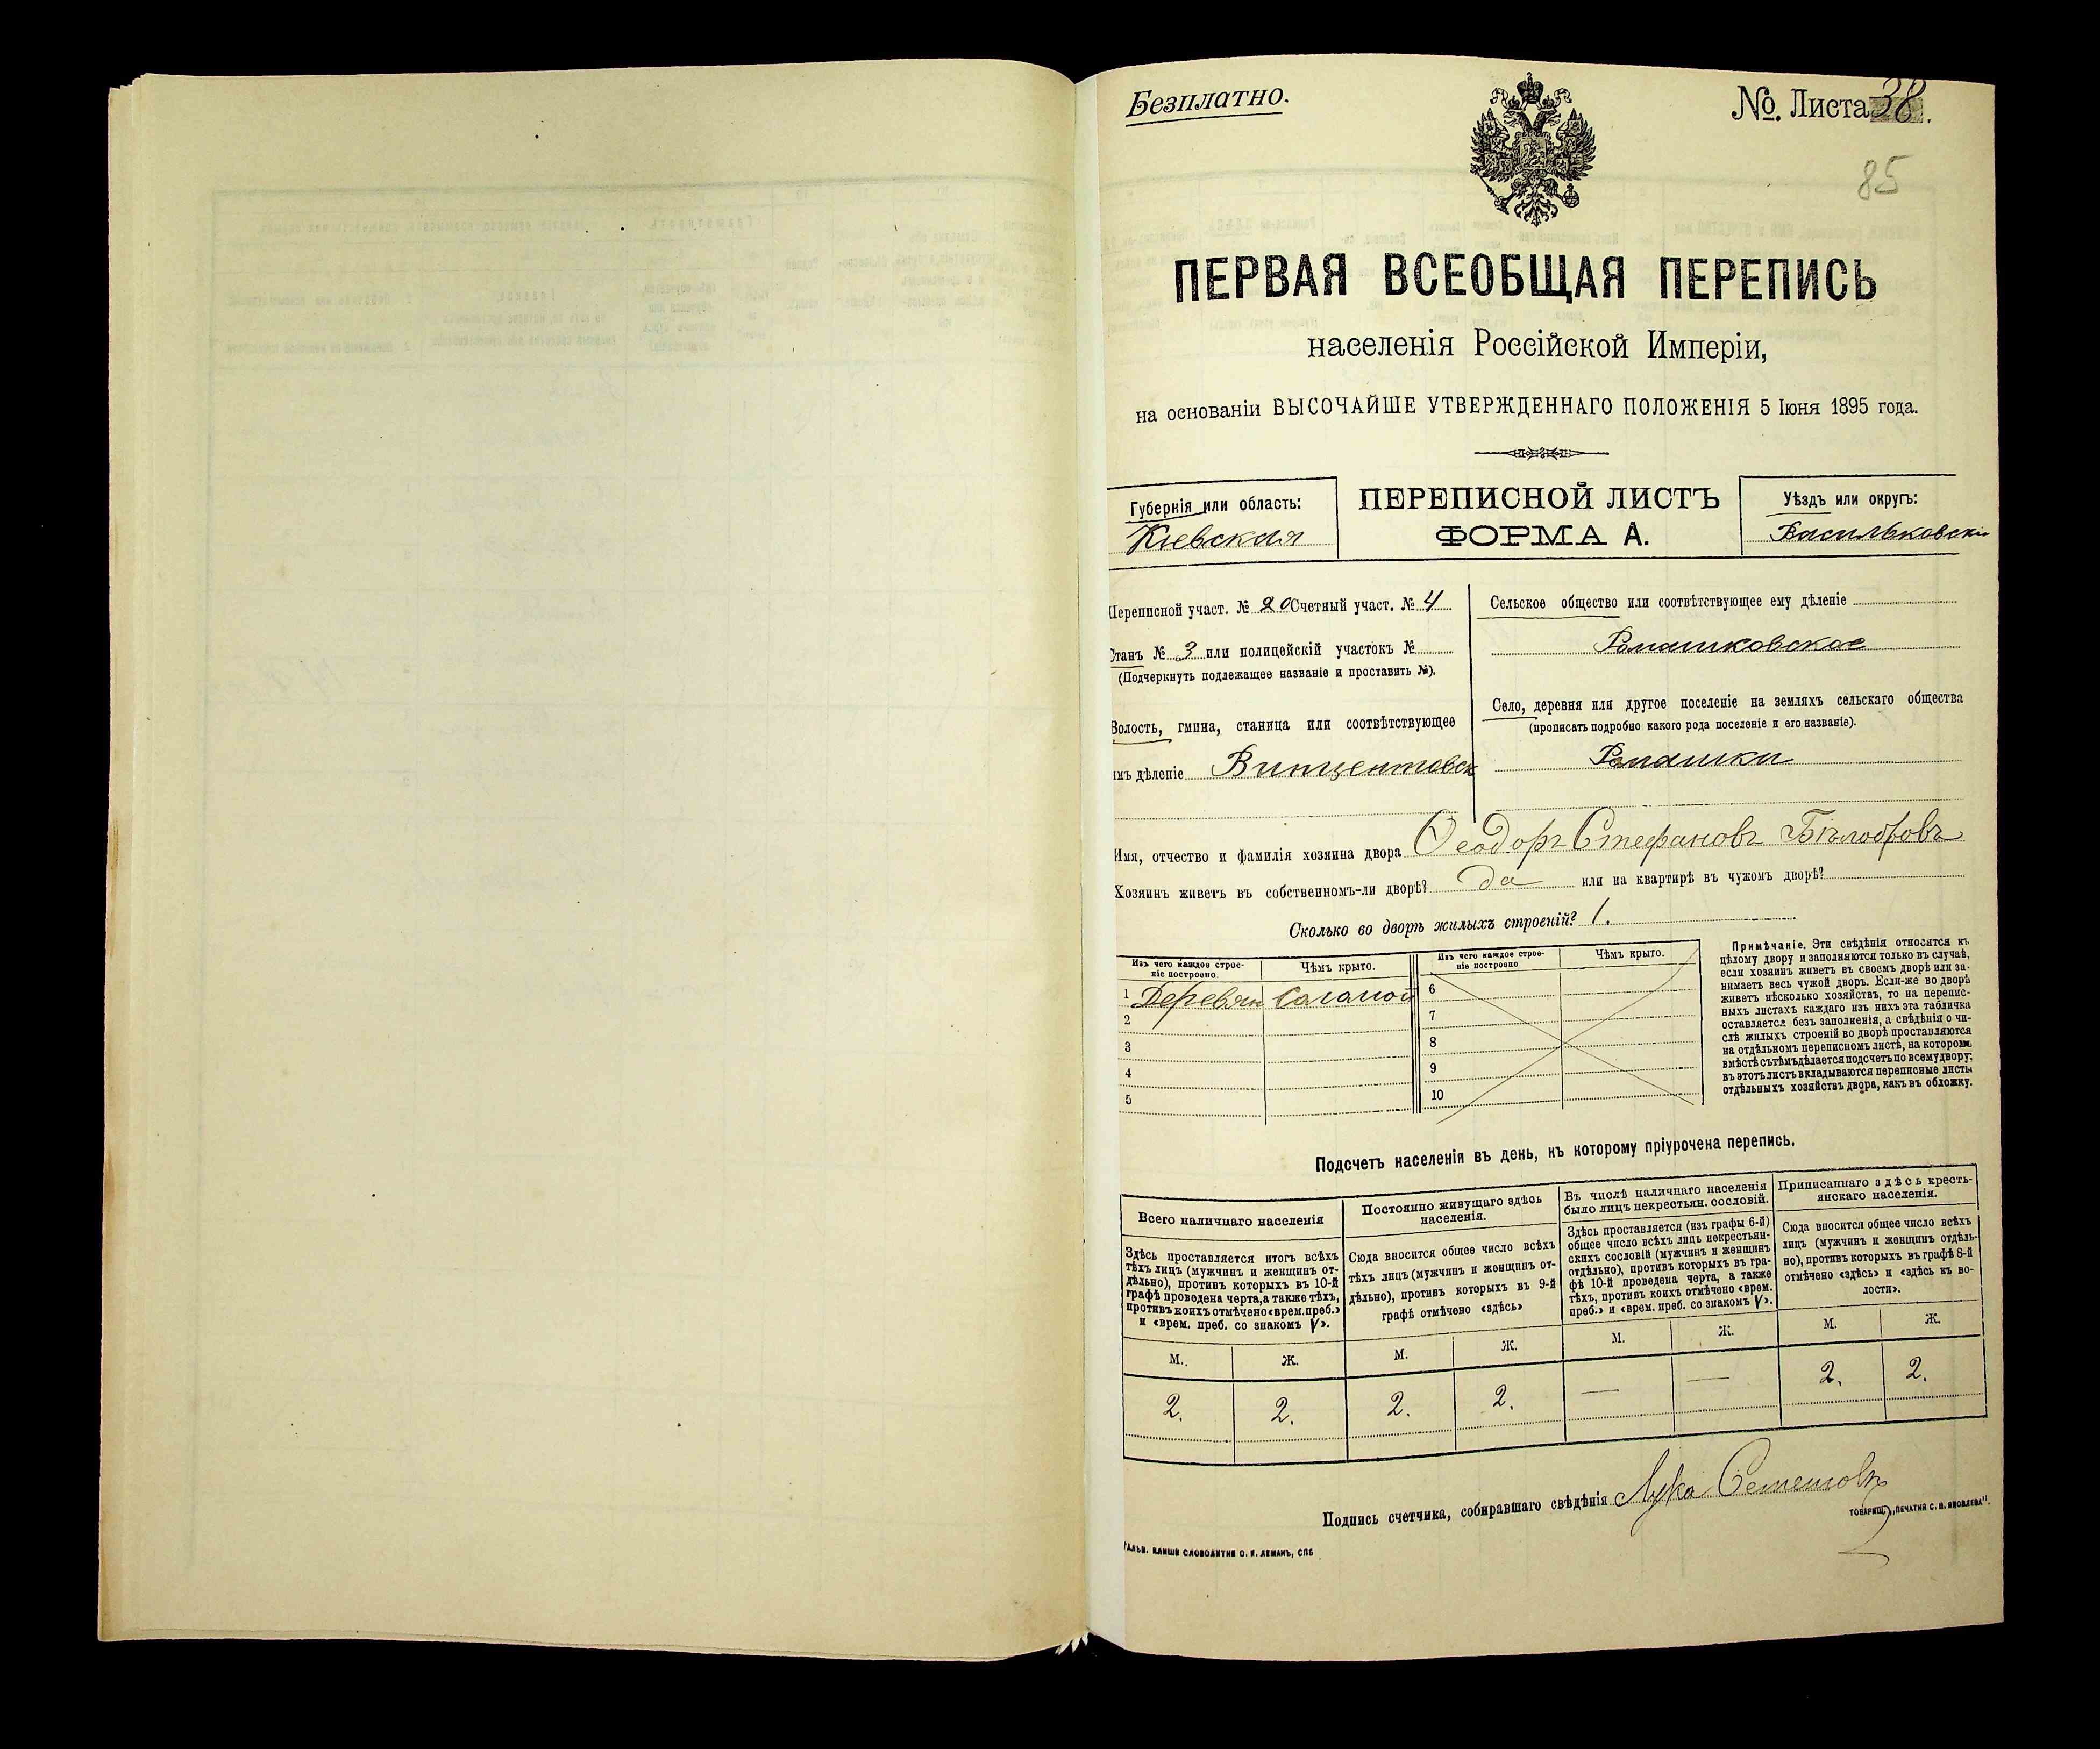 Безплатно.
№. Листа 38.
85
ПЕРВАЯ ВСЕОБЩАЯ ПЕРЕПИСЬ
населенія Россійской Имперіи,
на основаніи ВЫСОЧАЙШЕ УТВЕРЖДЕННАГО ПОЛОЖЕНІЯ 5 Іюня 1895 года.
Губернія или область:
Кіевская
ПЕРЕПИСНОЙ ЛИСТЪ
ФОРМА А.
Уѣздъ или округъ:
Васильковскій
Переписной участ. № 20 Счетный участ. № 4
Станъ № 3 или полицейскій участокъ №
(Подчеркнуть подлежащее названіе и проставить №).
Волость, гмина, станица или соотвѣтствующее
имъ дѣленіе Винцентовск
Сельское общество или соотвѣтствующее ему дѣленіе
Ромашковское
Село, деревня или другое поселеніе на земляхъ сельскаго общества
(прописать подробно какого рода поселеніе и его названіе).
Ромашки
Имя, отчество и фамилія хозяина двора Ѳеодоръ Стефановъ
Хозяинъ живетъ въ собственномъ-ли дворѣ? да или на квартирѣ въ чужомъ дворѣ?
Сколько во дворѣ жилыхъ строеній? 1.
Изъ чего каждое строе-
ніе построено.
Чѣмъ крыто.
Изъ чего каждое строе-
ніе построено
Чѣмъ крыто.
1 Деревян Саламой
2
3
4
5
6
7
8
9
10
Примѣчаніе. Эти свѣдѣнія относятся къ
цѣлому двору и заполняются только въ случаѣ,
если хозяинъ живетъ въ своемъ дворѣ или за-
нимаетъ весь чужой дворъ. Если-же во дворѣ
живетъ нѣсколько хозяйствъ, то на перепис-
ныхъ листахъ каждаго изъ нихъ эта табличка
оставляется безъ заполненія, а свѣдѣнія о чи-
слѣ жилыхъ строеній во дворѣ проставляются
на отдѣльномъ переписномъ листѣ, на которомъ
вмѣстѣ съ тѣмъ дѣлается подсчетъ по всему двору;
въ этотъ листъ вкладываются переписные листы
отдѣльныхъ хозяйствъ двора, какъ въ обложку.
Подсчетъ населенія въ день, къ которому пріурочена перепись.
Всего наличнаго населенія
Здѣсь проставляется итогъ всѣхъ
тѣхъ лицъ (мужчинъ и женщинъ от-
дѣльно), противъ которыхъ въ 10-й
графѣ проведена черта, а также тѣхъ,
противъ коихъ отмѣчено «врем. преб.»
и «врем. преб. со знакомъ V».
Постоянно живущаго здѣсь
населенія.
Сюда вносится общее число всѣхъ
тѣхъ лицъ (мужчинъ и женщинъ от-
дѣльно), противъ которыхъ въ 9-й
графѣ отмѣчено «здѣсь»
Въ числѣ наличнаго населенія
было лицъ некрестьян. сословій.
Здѣсь проставляется (изъ графы 6-й)
общее число всѣхъ лицъ некрестьян-
скихъ сословій (мужчинъ и женщинъ
отдѣльно), противъ которыхъ въ гра-
фѣ 10-й проведена черта, а также
тѣхъ, противъ коихъ отмѣчено «врем.
преб.» и «врем. преб. со знакомъ V».
Приписаннаго здѣсь кресть-
янскаго населенія.
Сюда вносится общее число всѣхъ
лицъ (мужчинъ и женщинъ отдѣль-
но), противъ которыхъ въ графѣ 8-й
отмѣчено «здѣсь» и «здѣсь къ во-
лости».
М. Ж. М. Ж. М. Ж. М. Ж.
2. 2. 2. 2. — — 2. 2.
Подпись счетчика, собиравшаго свѣдѣнія Лука
ТОВАРИЩ. „ПЕЧАТНЯ С. П. ЯКОВЛЕВА".
ГАЛЬВ. КЛИШЕ СЛОВОЛИТНИ О. И. ЛЕМАНЪ, СПБ